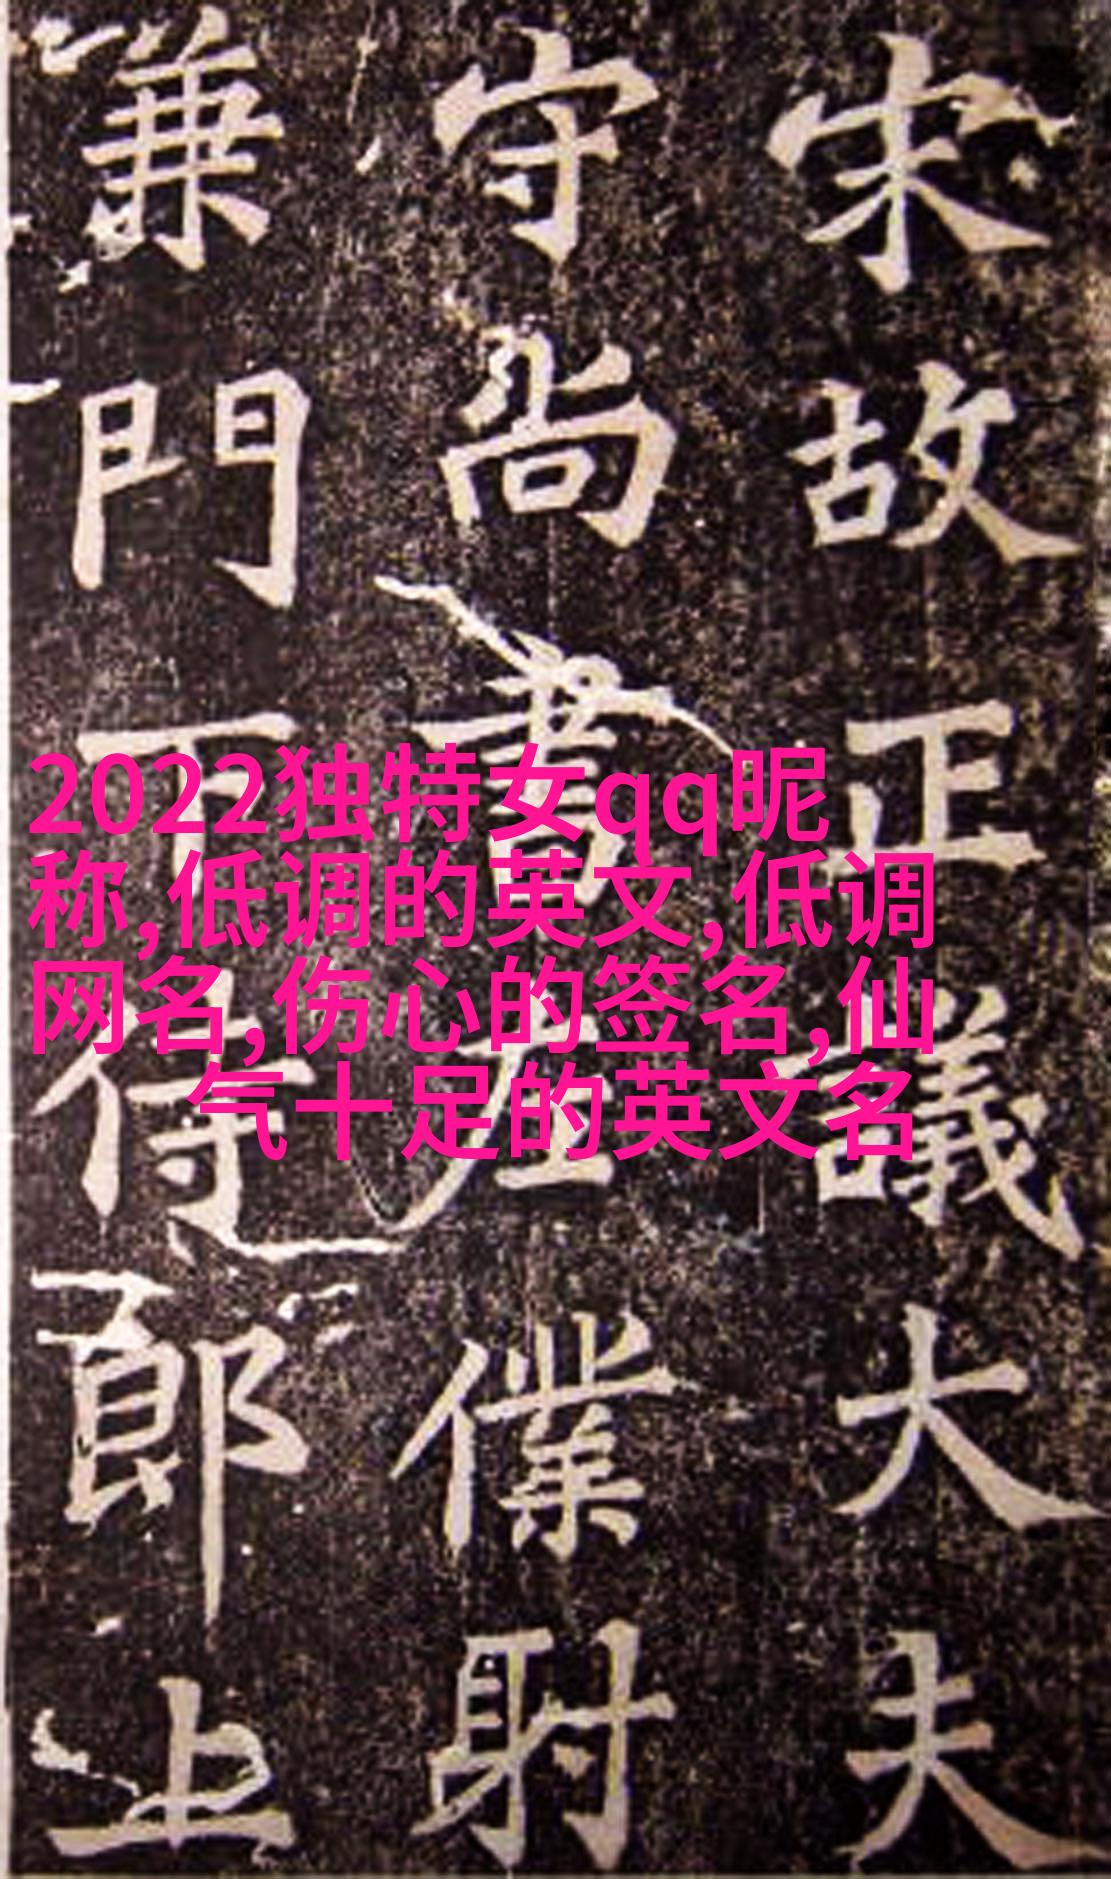 宋故正議大夫
守尚書左僕射
兼門下侍郎上
2022独特女qq昵
称,低调的英文,低调
网名,伤心的签名,仙
气十足的英文名